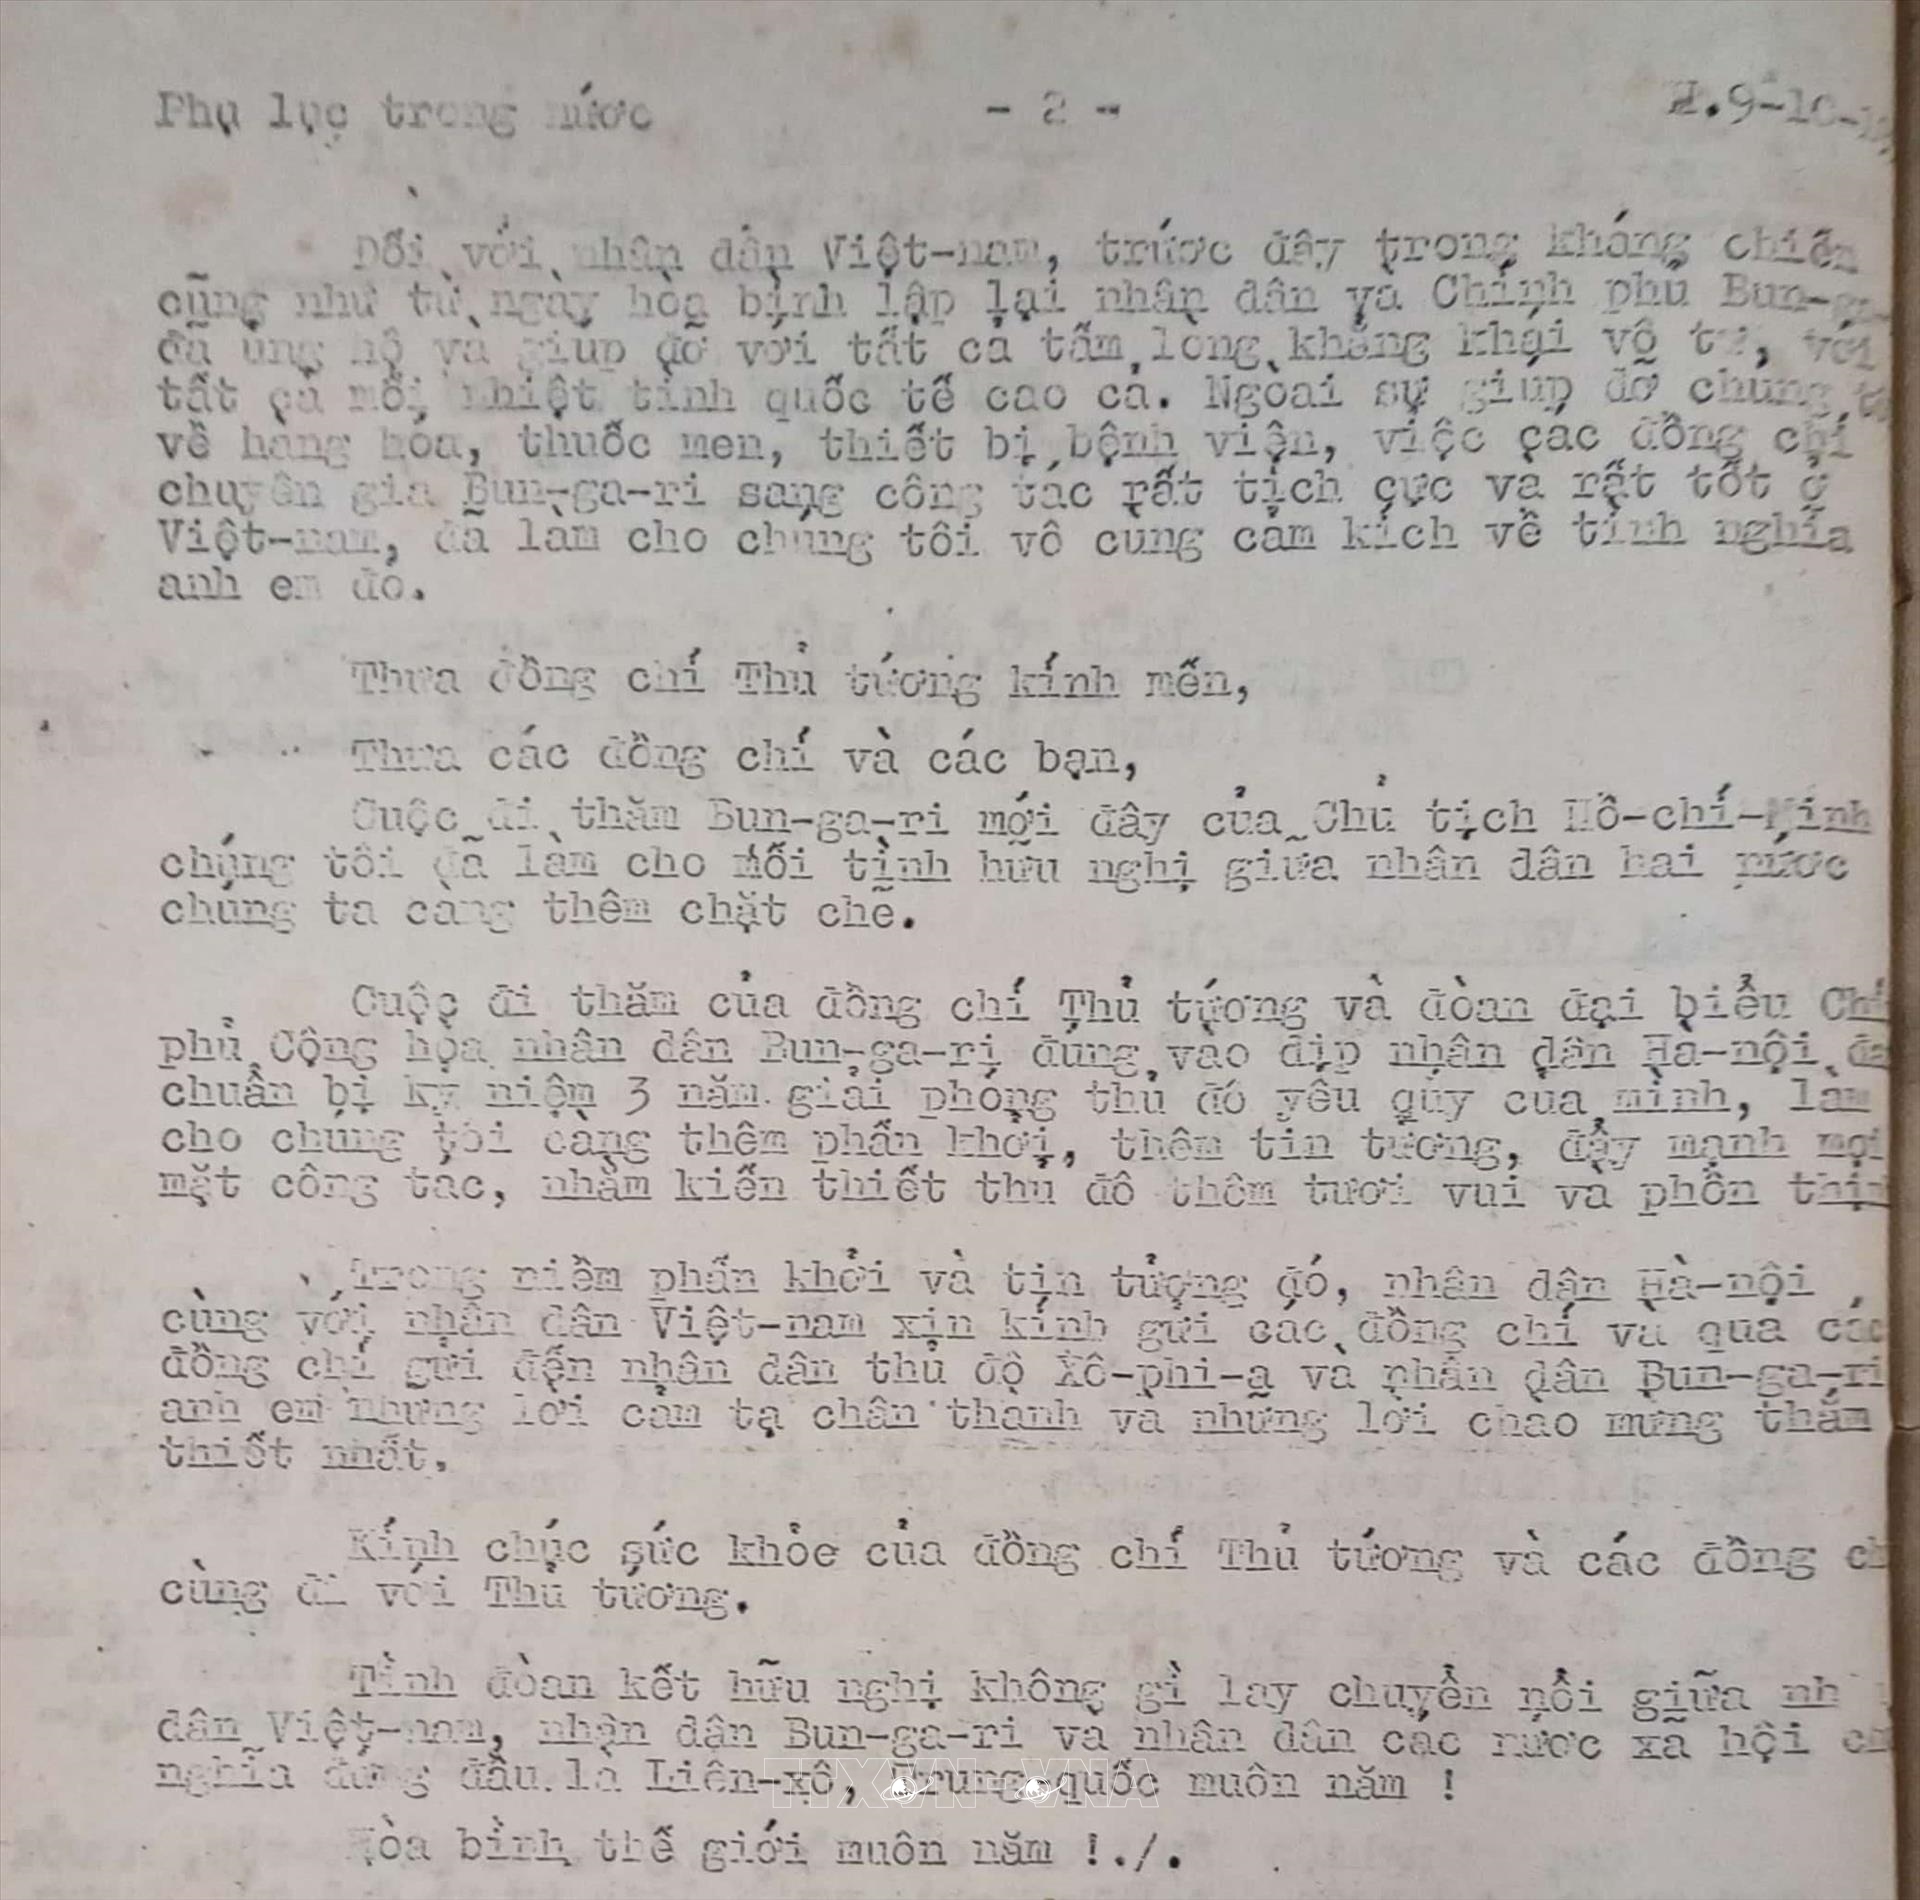 Phụ lục trong nước - 2 - H.9-10-
Đối với nhân dân Việt-nam, trước đây trong kháng chiến
cũng như từ ngày hòa bình lập lại nhân dân và Chính phủ Bun-ga-
đã ủng hộ và giúp đỡ với tất cả tấm lòng khảng khái vô tư, với
tất cả mối nhiệt tình quốc tế cao cả. Ngoài sự giúp đỡ chúng
về hàng hóa, thuốc men, thiết bị bệnh viện, việc các đồng chí
chuyên gia Bun-ga-ri sang công tác rất tích cực và rất tốt ở
Việt-nam, đã làm cho chúng tôi vô cùng cảm kích về tình nghĩa
anh em đó.
Thưa đồng chí Thủ tướng kính mến,
Thưa các đồng chí và các bạn,
Cuộc đi thăm Bun-ga-ri mới đây của Chủ tịch Hồ-chí-Minh
chúng tôi đã làm cho mối tình hữu nghị giữa nhân dân hai nước
chúng ta càng thêm chặt chẽ.
Cuộc đi thăm của đồng chí Thủ tướng và đòan đại biểu Chí
phủ Cộng hòa nhân dân Bun-ga-ri đúng vào dịp nhân dân Hà-nội
chuẩn bị kỷ niệm 3 năm giải phóng thủ đô yêu qúy của mình, làm
cho chúng tôi càng thêm phấn khởi, thêm tin tưởng, đẩy mạnh mọi
mặt công tác, nhằm kiến thiết thủ đô thêm tươi vui và phồn thịn
Trong niềm phấn khởi và tin tưởng đó, nhân dân Hà-nội
cùng với nhân dân Việt-nam xin kính gửi các đồng chí và qua các
đồng chí gửi đến nhân dân thủ đô Xô-phi-a và nhân dân Bun-ga-ri
anh em những lời cảm tạ chân thành và những lời chào mừng thắm
thiết nhất.
Kính chúc sức khỏe của đồng chí Thủ tướng và các đồng ch
cùng đi với Thủ tướng.
Tình đòan kết hữu nghị không gì lay chuyển nổi giữa nh
dân Việt-nam, nhân dân Bun-ga-ri và nhân dân các nước xã hội ch
nghĩa đứng đầu là Liên-xô, Trung-quốc muôn năm !
Hòa bình thế giới muôn năm !./.
TTXVN-VNA